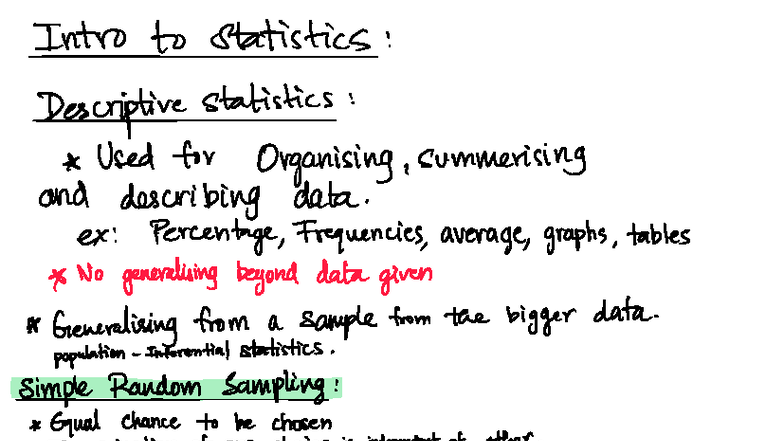 Intro to Statistics:
Descriptive Statistics:
* Used for Organising, summerising
and describing data.
ex: Percentage, Frequencies, average, graphs, tables
* No generalising beyond data given
* Generalising from a sample from the bigger data.
population - Inferential statistics.
Simple Random Sampling:
* Equal chance to be chosen
other